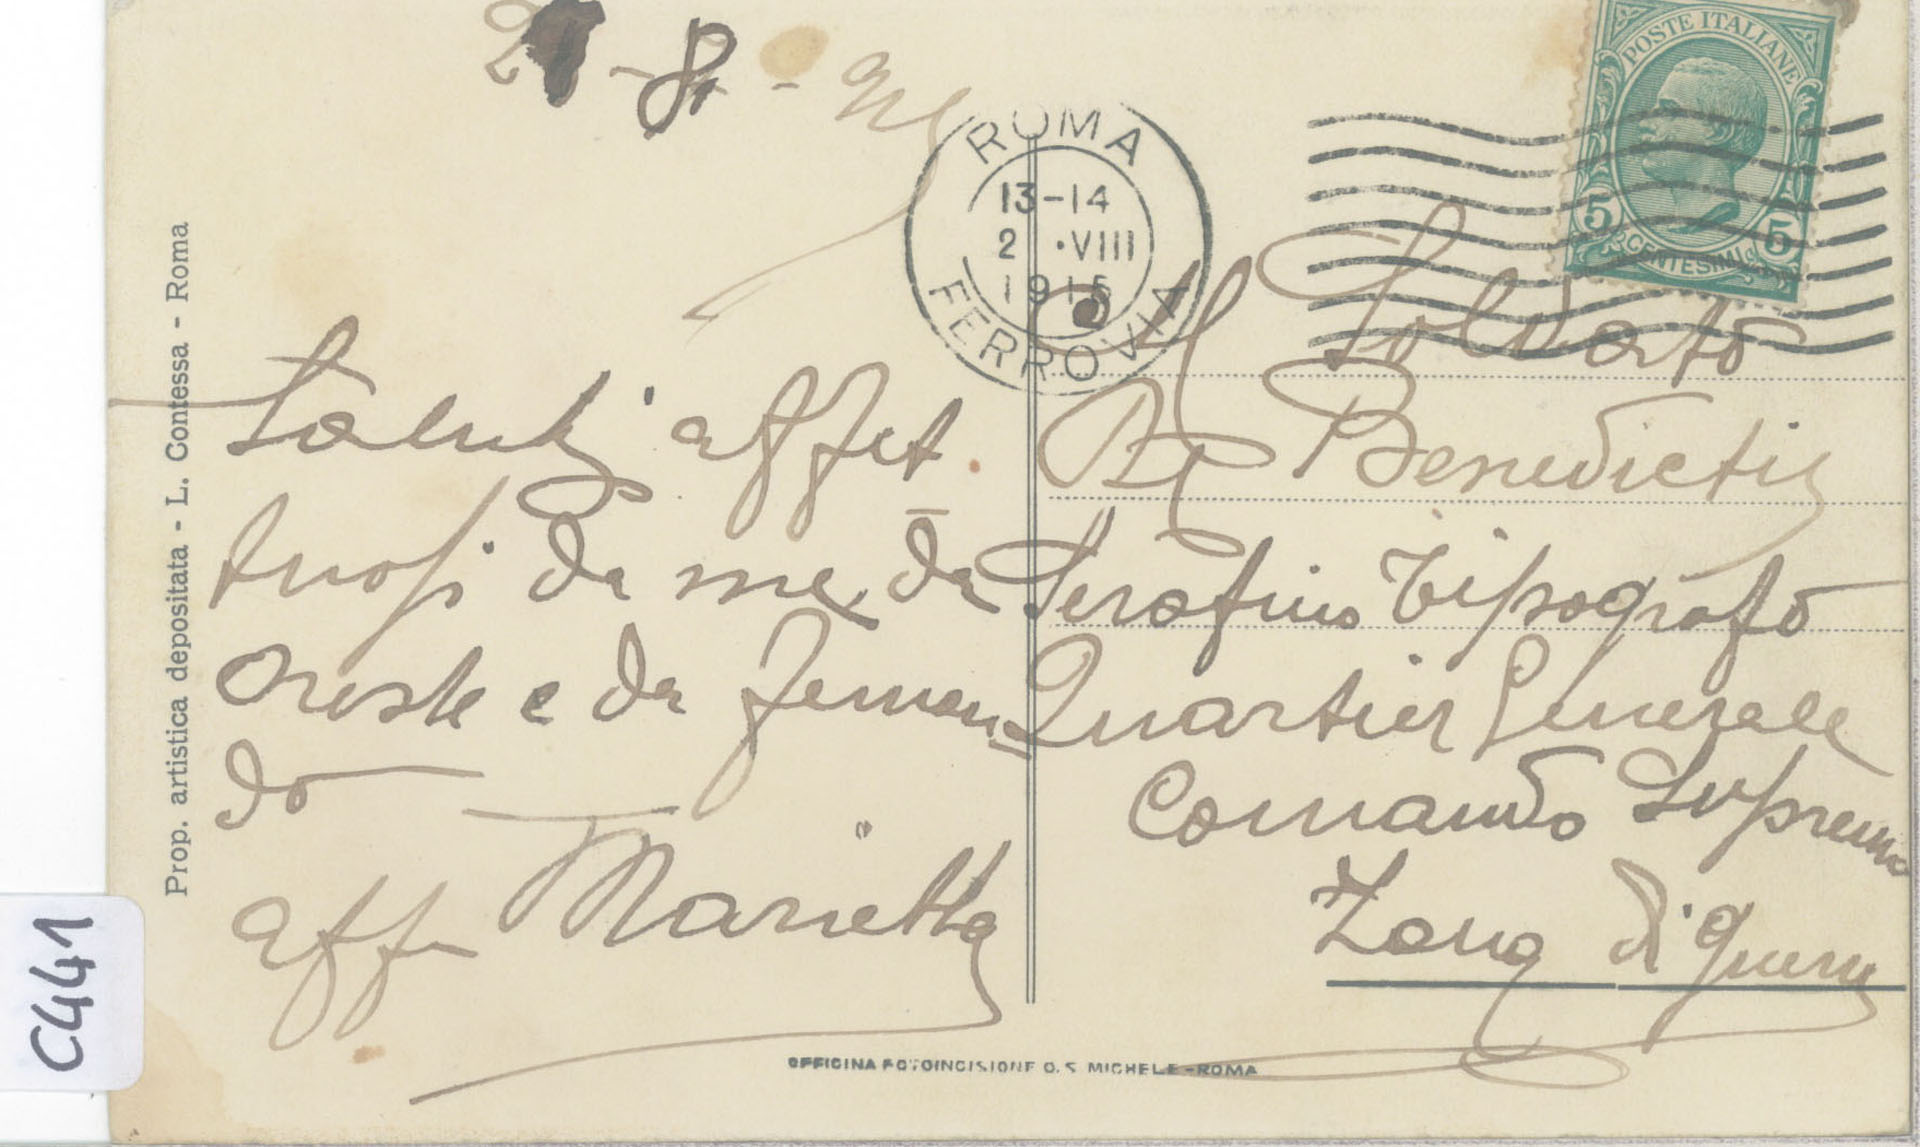 2 - 8 -
POSTE ITALIANE
5 5
CENTESIMI
ROMA
13-14
2 .VIII
1915
FERROVIA
Prop. artistica depositata - L. Contessa - Roma
Saluti affet
tuosi da me, da
Oreste e da Fernan
do
aff Marietta
Al Soldato
De Benedictis
Serafino Tipografo
Quartier Generale
Comando Supremo
Zona di guerra
OFFICINA FOTOINCISIONE O. S. MICHELE - ROMA
C441